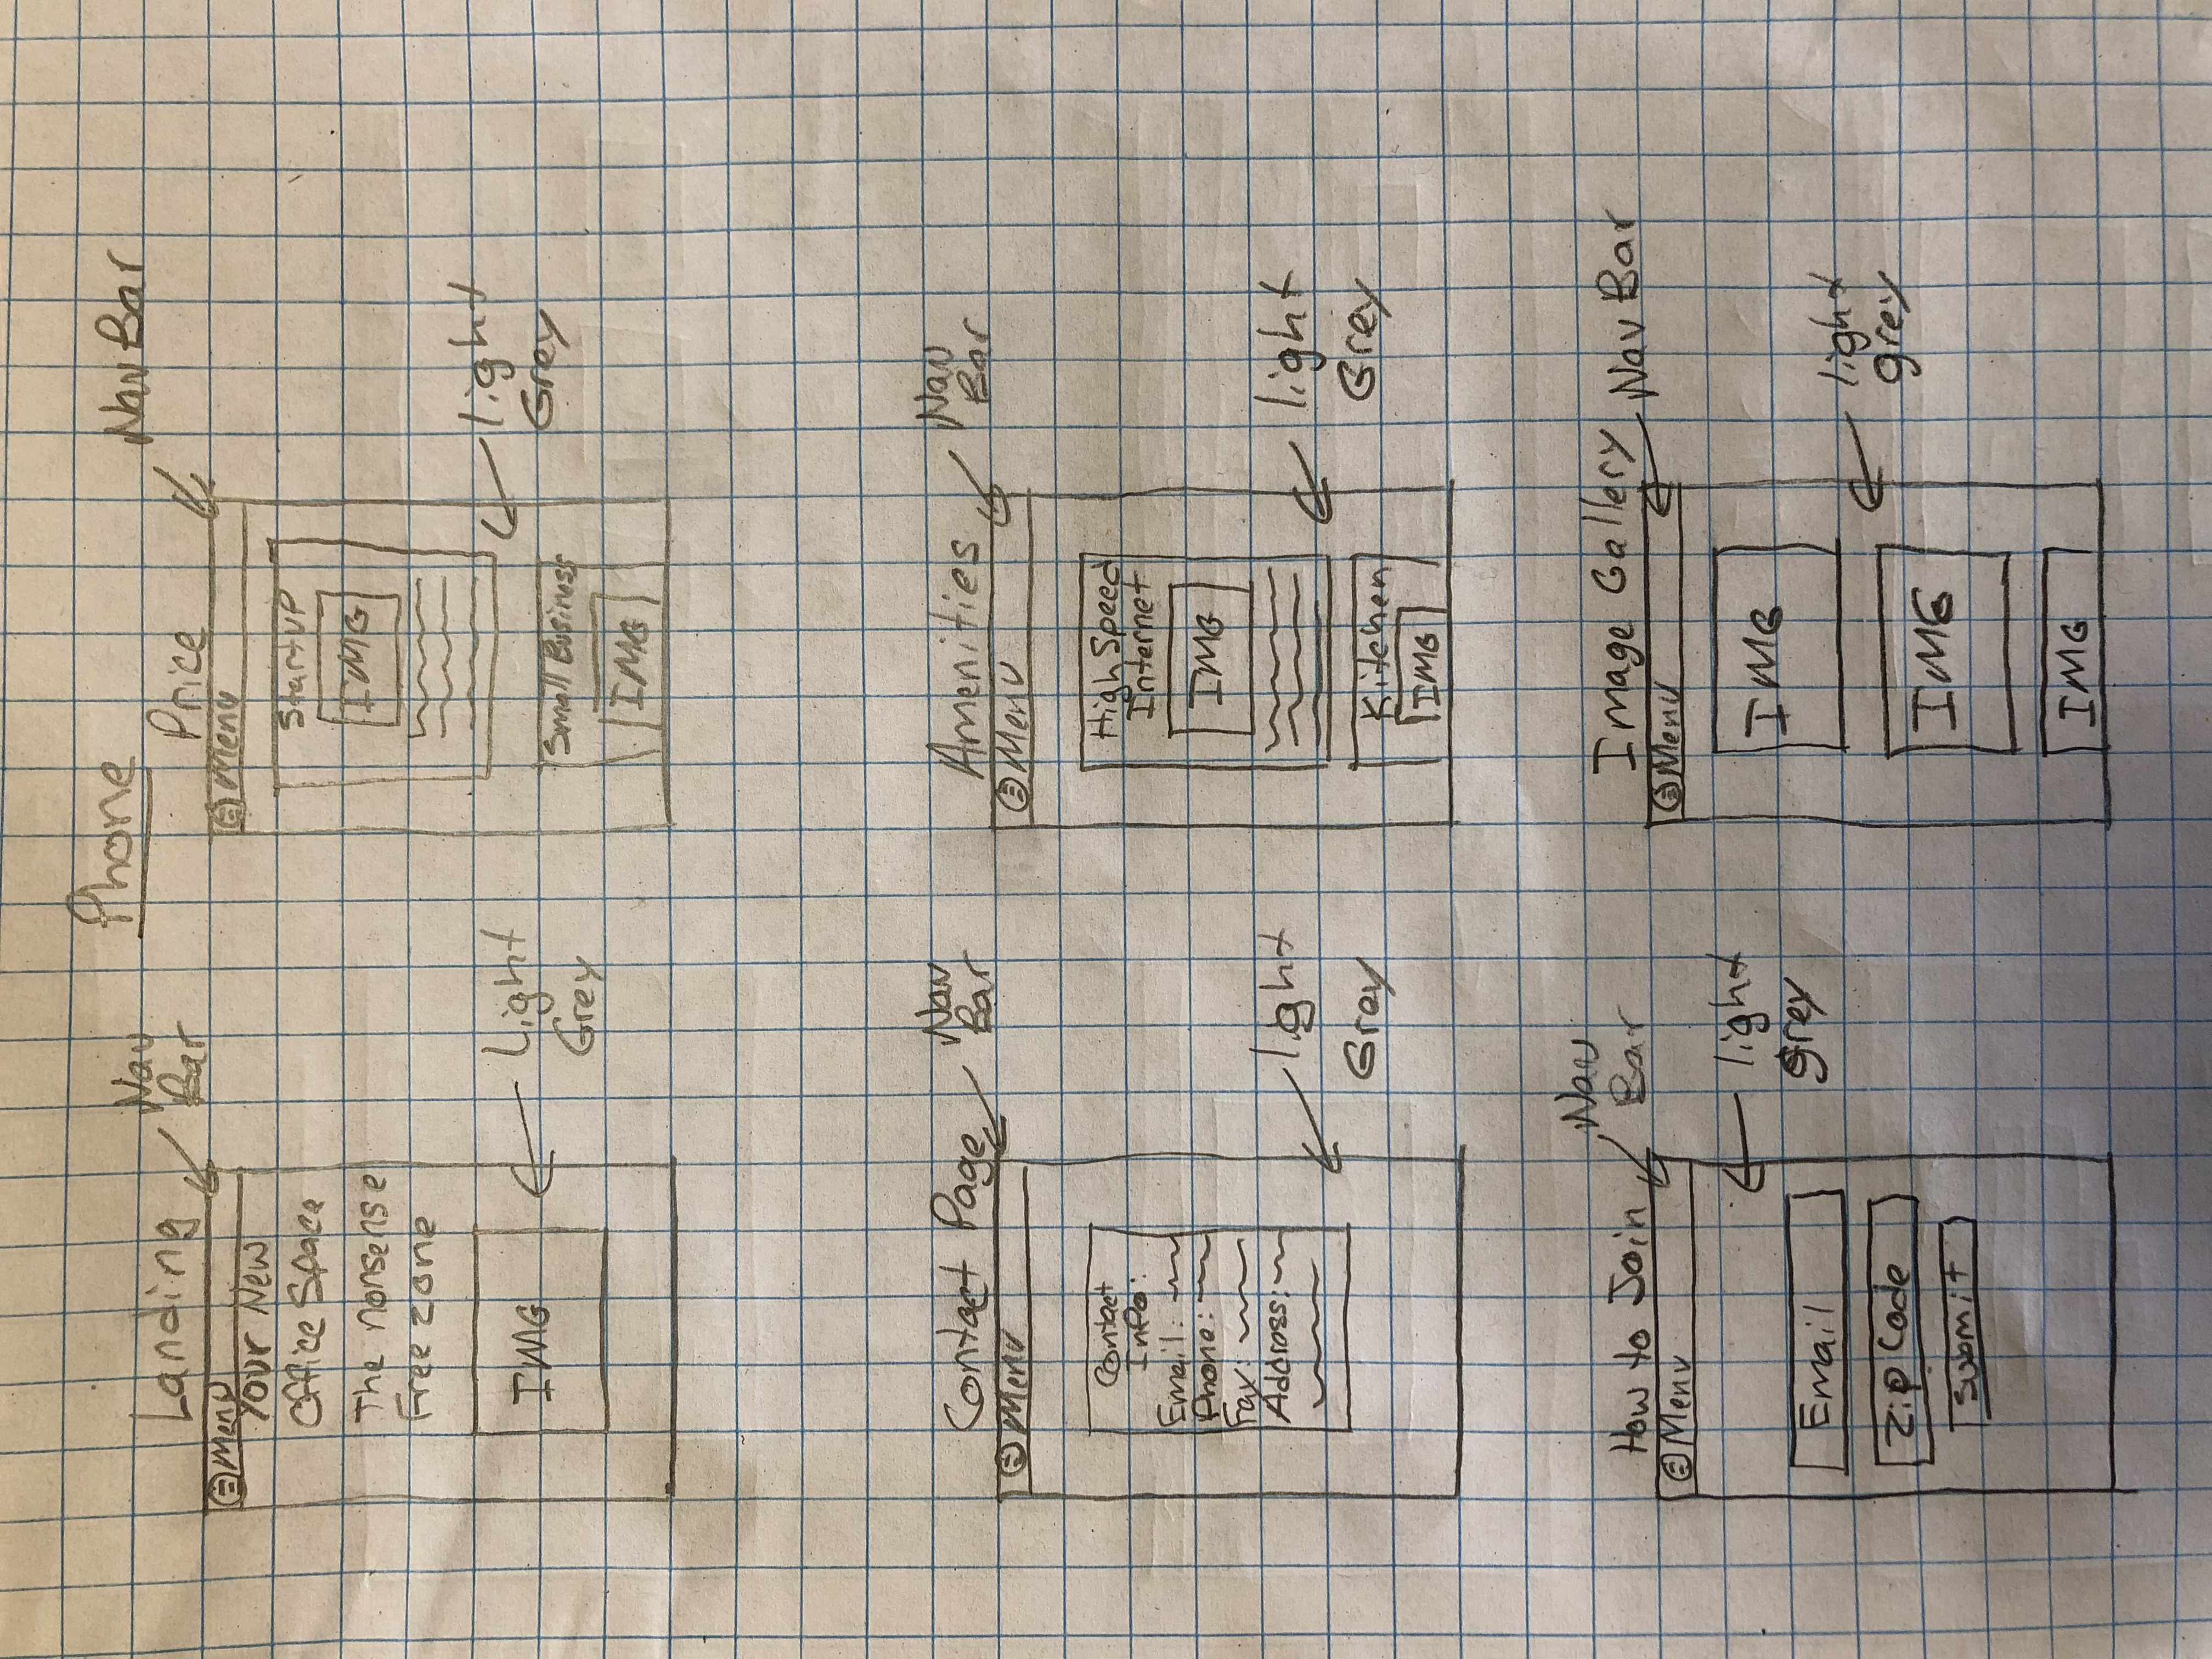 Phone
Landing
Nav
Bar
Menu
Your New
Office Space
The nonsense
Free zone
IMG
Light
Grey
Price
Nav Bar
Menu
Startup
IMG
Small Business
IMG
light
Grey
Contact Page
Nav
Bar
Menu
Contact
Info:
Email:
Phone:
Fax:
Address:
light
Grey
Amenities
Nav
Bar
Menu
High Speed
Internet
IMG
Kitchen
IMG
light
Grey
How to Join
Nav
Bar
Menu
Email
Zip Code
Submit
light
grey
Image Gallery
Nav Bar
Menu
IMG
IMG
IMG
light
grey